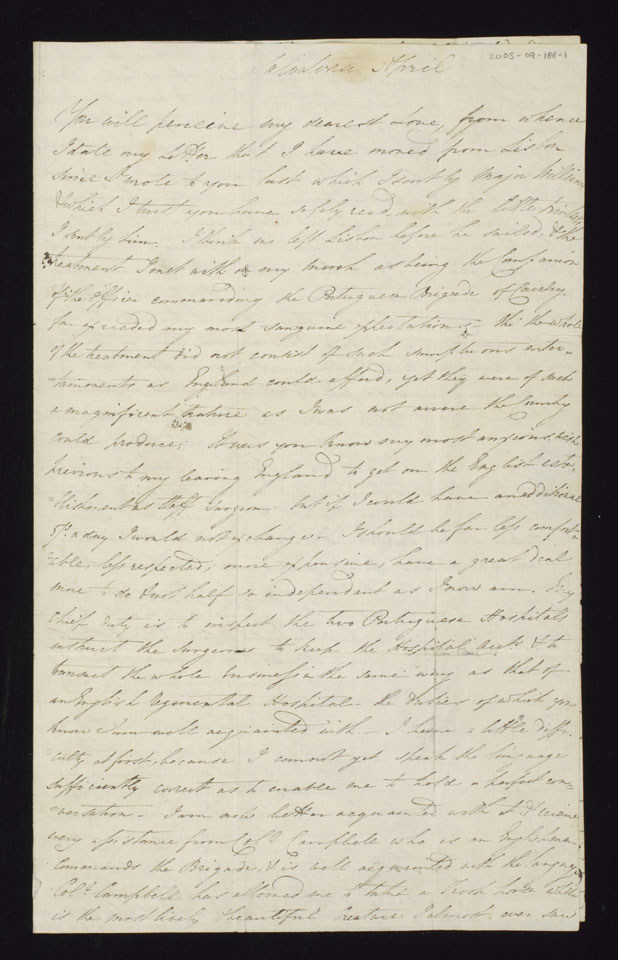 2005-09-188-1
April
You will perceive my dearest Love, from whence
I date my Letter that I have moved from Lisbon
since I wrote to you last which I sent by Major William
& which I trust you have safely recd. with the little
I sent by him. I think we left Lisbon before he sailed, & the
treatment I met with on my march as being the Companion
of the Officer commanding the Portuguese Brigade of Cavalry
far exceeded my most sanguine expectations - tho' the whole
of the treatment did not consist of such sumptuous enter-
tainments as England could afford, yet they were of such
a magnificent nature as I was not aware the Country
could produce; It was you know my most anxious wish
previous to my leaving England to get on the English esta-
-blishment as Staff Surgeon but if I could have an additional
5/. a day I would not exchange. I should be far less comfort-
-able, less respected, more expensive, have a great deal
more to do & not half so independent as I now am. My
Chief duty is to inspect the two Portuguese Hospitals
instruct the Surgeons to keep the Hospital Accts. & to
transact the whole business in the same way as that of
an English regimental Hospital - the duties of which you
know I am well acquainted with - I have a little diffi-
-culty at first, because I cannot yet speak the language
sufficiently correct as to enable me to hold a perfect con-
-versation - I am better acquainted with it & receive
very assistance from Coll. Campbell who is an Englishman
commands the Brigade, & is well acquainted with the language
Coll. Campbell has allowed me to take a Troop horse which
is the most lively & beautiful Creature I almost ever saw